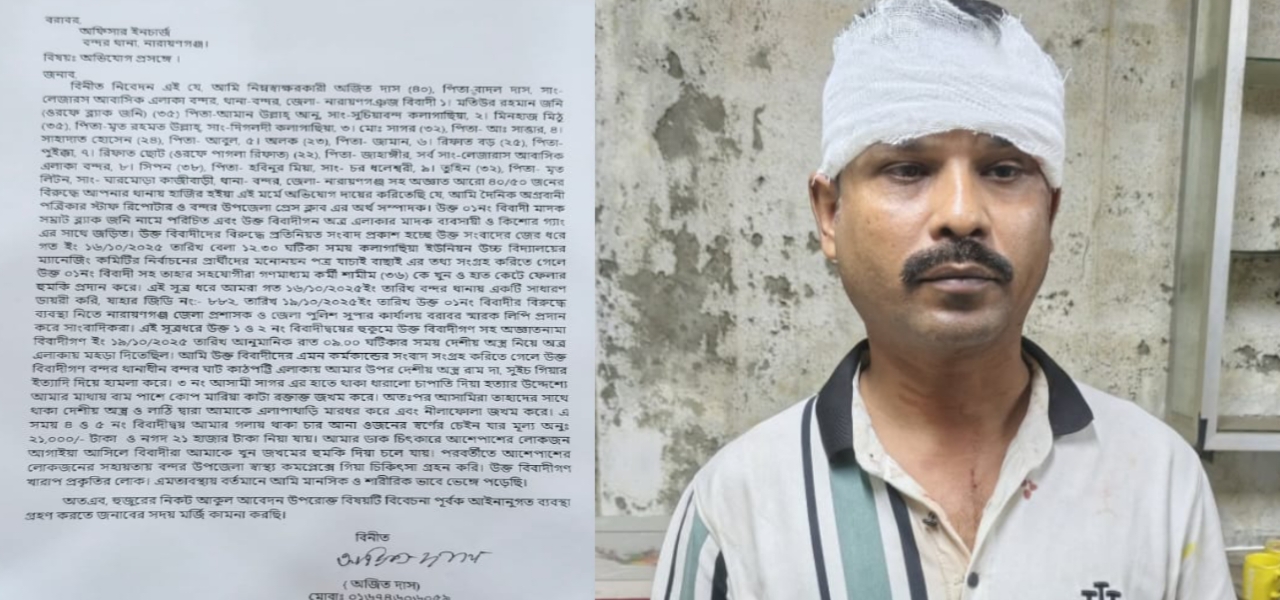 বরাবর,
অফিসার ইনচার্জ
বন্দর থানা, নারায়ণগঞ্জ।
বিষয়ঃ অভিযোগ প্রসঙ্গে ।
জনাব,
বিনীত নিবেদন এই যে, আমি নিম্নস্বাক্ষরকারী অজিত দাস (৪০), পিতা-বাদল দাস, সাং-
লেজারস আবাসিক এলাকা বন্দর, থানা-বন্দর, জেলা- নারায়ণগঞ্জ বিবাদী ১। মতিউর রহমান জনি
(ওরফে ব্ল্যাক জনি) (৩৫) পিতা-আমান উল্লাহ্ আনু, সাং-সুচিয়ারবন্দ কলাগাছিয়া, ২। মিনহাজ মিঠু
(৩৫), পিতা-মৃত রহমত উল্লাহ, সাং-নিগলদী কলাগাছিয়া, ৩। মোঃ সাগর (৩২), পিতা- আঃ সাত্তার, ৪।
সাহাদাত হোসেন (২৪), পিতা- আবুল, ৫। অলক (২৩), পিতা- জামান, ৬। রিফাত বড় (২৫), পিতা-
পুইক্কা, ৭। রিফাত ছোট (ওরফে পাগলা রিফাত) (২২), পিতা- জাহাঙ্গীর, সর্ব সাং-লেজারাস আবাসিক
এলাকা বন্দর, ৮। সিপন (৩৮), পিতা- হবিনুর মিয়া, সাং- চর ধলেশ্বরী, ৯। তুহিন (৩২), পিতা- মৃত
লিটন, সাং- মারমোড়া কাজীবাড়ী, থানা- বন্দর, জেলা- নারায়ণগঞ্জ সহ অজ্ঞাত আরো ৪০/৫০ জনের
বিরুদ্ধে আপনার থানায় হাজির হইয়া এই মর্মে অভিযোগ দায়ের করিতেছি যে, আমি দৈনিক অগ্রবানী
পত্রিকার স্টাফ রিপোটার ও বন্দর উপজেলা প্রেস ক্লাব এর অর্থ সম্পাদক। উক্ত ০১নং বিবাদী মাদক
সম্রাট ব্ল্যাক জনি নামে পরিচিত এবং উক্ত বিবাদীগন অত্র এলাকার মাদক ব্যবসায়ী ও কিশোর গ্যাং
এর সাথে জড়িত। উক্ত বিবাদীদের বিরুদ্ধে প্রতিনিয়ত সংবাদ প্রকাশ হচ্ছে উক্ত সংবাদের জের ধরে
গত ইং ১৬/১০/২০২৫ তারিখ বেলা ১২.৩০ ঘটিকা সময় কলাগাছিয়া ইউনিয়ন উচ্চ বিদ্যালয়ের
ম্যানেজিং কমিটির নির্বাচনের প্রার্থীদের মনোনয়ন পত্র যাচাই বাছাই এর তথ্য সংগ্রহ করিতে গেলে
উক্ত ০১নং বিবাদী সহ তাহার সহযোগীরা গণমাধ্যম কর্মী শামীম (৩৬) কে খুন ও হাত কেটে ফেলার
হুমকি প্রদান করে। এই সুত্র ধরে আমরা গত ১৬/১০/২০২৫ইং তারিখ বন্দর থানায় একটি সাধারণ
ডায়রী করি, যাহার জিডি নং:- ৮৮২, তারিখ ১৯/১০/২০২৫ইং তারিখ উক্ত ০১নং বিবাদীর বিরুদ্ধে
ব্যবস্থা নিতে নারায়ণগঞ্জ জেলা প্রশাসক ও জেলা পুলিশ সুপার কার্যালয় বরাবর স্মারক লিপি প্রদান
করে সাংবাদিকরা। এই সূত্রধরে উক্ত ১ ও ২ নং বিবাদীদ্বয়ের হুকুমে উক্ত বিবাদীগণ সহ অজ্ঞাতনামা
বিবাদীগণ ইং ১৯/১০/২০২৫ তারিখ আনুমানিক রাত ০৯.০০ ঘটিকার সময় দেশীয় অস্ত্র নিয়ে অত্র
এলাকায় মহড়া দিতেছিল। আমি উক্ত বিবাদীদের এমন কর্মকান্ডের সংবাদ সংগ্রহ করিতে গেলে উক্ত
বিবাদীগণ বন্দর থানাধীন বন্দর ঘাট কাঠপট্টি এলাকায় আমার উপর দেশীয় অস্ত্র রাম দা, সুইচ গিয়ার
ইত্যাদি দিয়ে হামলা করে। ৩ নং আসামী সাগর এর হাতে থাকা ধারালো চাপাতি দিয়া হত্যার উদ্দেশ্যে
আমার মাথায় বাম পাশে কোপ মারিয়া কাটা রক্তাক্ত জখম করে। অতঃপর আসামিরা তাহাদের সাথে
থাকা দেশীয় অস্ত্র ও লাঠি দ্বারা আমাকে এলাপাথাড়ি মারধর করে এবং নীলাফোলা জখম করে। এ
সময় ৪ ও ৫ নং বিবাদীদ্বয় আমার গলায় থাকা চার আনা ওজনের স্বর্ণের চেইন যার মূল্য অনুঃ
২১,০০০/- টাকা ও নগদ ২১ হাজার টাকা নিয়া যায়। আমার ডাক চিৎকারে আশেপাশের লোকজন
আগাইয়া আসিলে বিবাদীরা আমাকে খুন জখমের হুমকি দিয়া চলে যায়। পরবর্তীতে আশেপাশের
লোকজনের সহায়তায় বন্দর উপজেলা স্বাস্থ্য কমপ্লেক্সে গিয়া চিকিৎসা গ্রহন করি। উক্ত বিবাদীগণ
খারাপ প্রকৃতির লোক। এমতাবস্থায় বর্তমানে আমি মানসিক ও শারীরিক ভাবে ভেঙ্গে পড়েছি।
অতএব, হুজুরের নিকট আকুল আবেদন উপরোক্ত বিষয়টি বিবেচনা পূর্বক আইনানুগত ব্যবস্থা
গ্রহণ করতে জনাবের সদয় মর্জি কামনা করছি।
বিনীত
অজিত দাস
( অজিত দাস)
মোবাঃ ০১৬৭৪৬০৬০৫৯